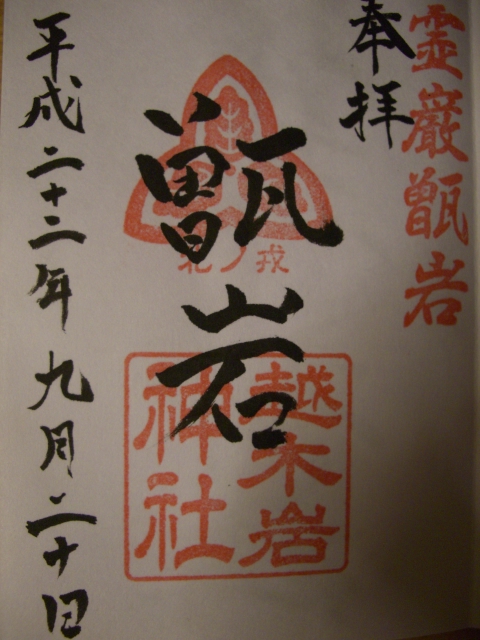 霊巌甑岩
奉拝
甑岩
北ノ戎
越木岩
神社
平成二十二年九月二十日